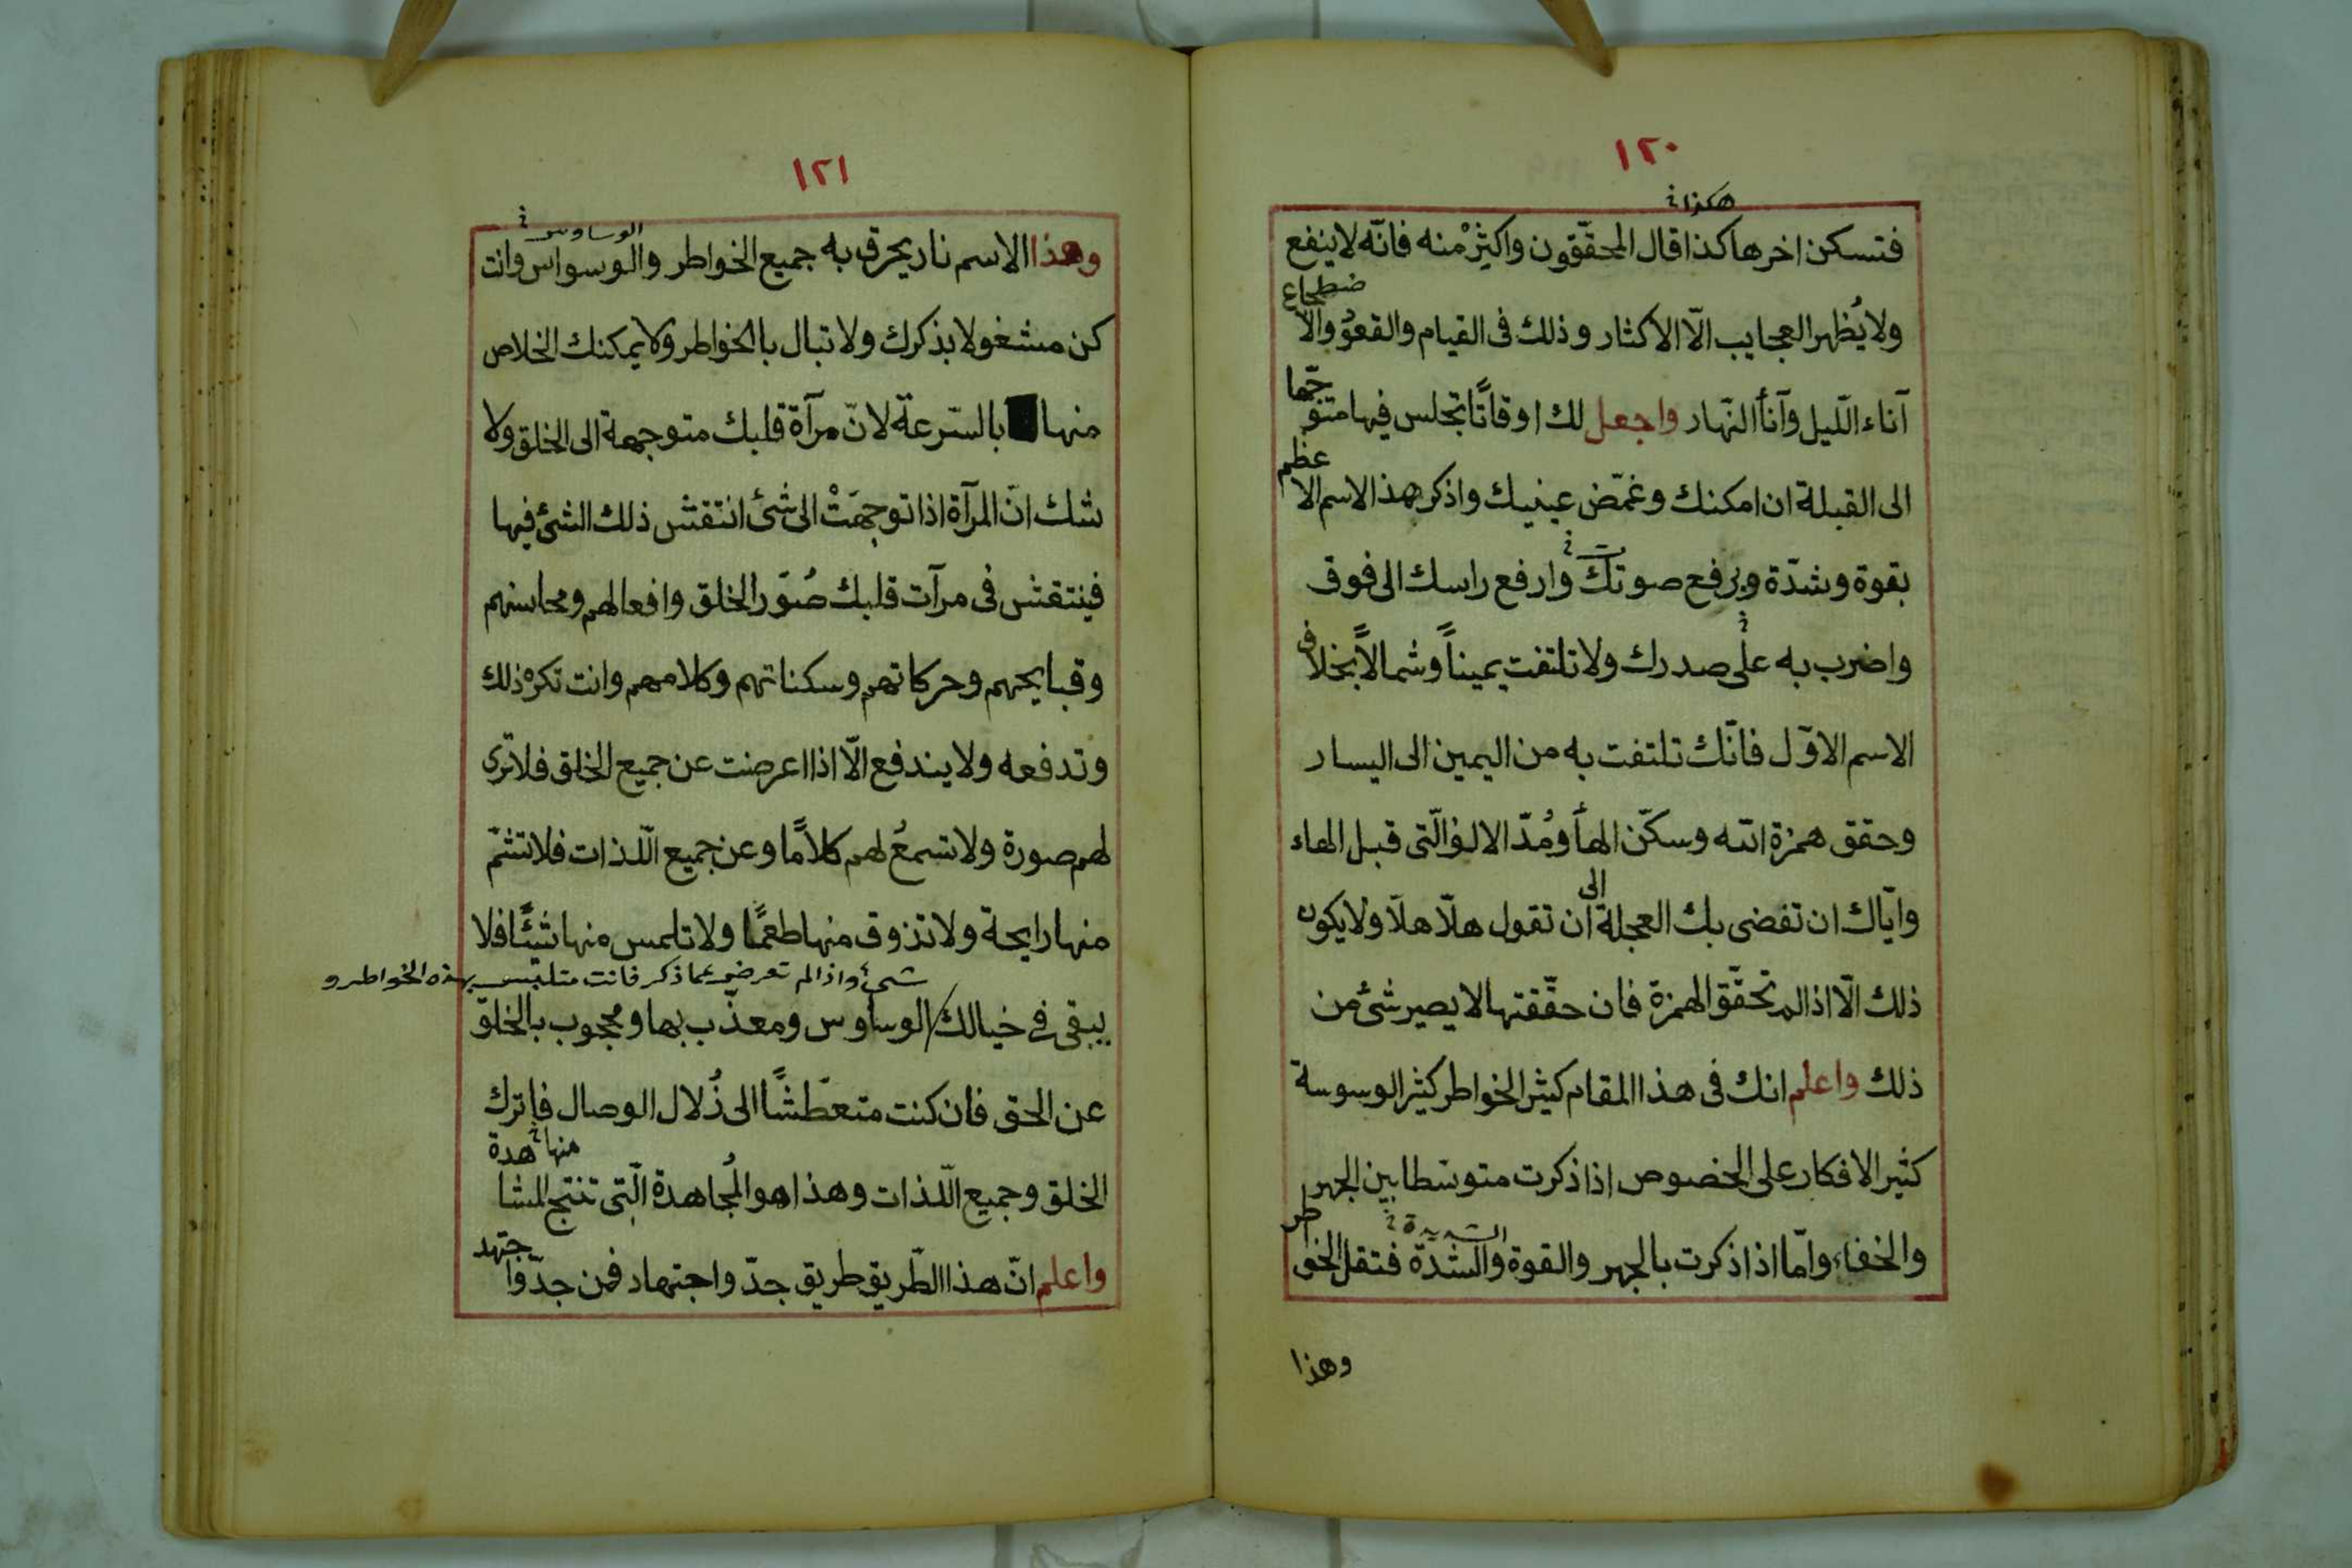 ١٢٠
هكذا
فتسكن اخرها كذا قال المحقّقون واكثِرْ منه فانّه لا ينفع
ولا يُظهر العجايب الّا الاكثار وذلك فى القيام والقعوُد والاضطجاع
آناء الّليل وآناأ النّهار واجعل لك اوقاتًا تجلس فيها متوجّها
الى القبلة ان امكنك وغمّض عينيك واذكر هذا الاسم الاعظم
بقوة وشدّة وبرفع صوتك وارفع راسك الى فوق
واضرب به على صدرك ولا تلتفت يمينًا وشمالًا بخلاف
الاسم الاوّل فانّك تلتفت به من اليمين الى اليسار
وحقق همزة الله وسكّن الهأ ومُدّ الالف الّتى قبل الهاء
وايّاك ان تفضى بك العجلة الى ان تقول هلّا هلّا ولا يكون
ذلك الّا اذا لم تحقّق الهمزة فان حقّقتها لا يصير شئ من
ذلك واعلم انك فى هذا المقام كثير الخواطر كثير الوسوسة
كثير الافكار على الخصوص اذا ذكرت متوسّطا بين الجهر
والخفاء وامّا اذا ذكرت بالجهر والقوة والشدّة فتقل الخواطر
وهذا
١٢١
الوساوس
وهذا الاسم نار يحرق به جميع الخواطر والوسواس وانت
كن مشغولا بذكرك ولا تبال بالخواطر ولا يمكنك الخلاص
منها بالسّرعة لانّ مرآة قلبك متوجهة الى الخلق ولا
شك انّ المرآة اذا توجهَتْ الى شئ انتقش ذلك الشئ فيها
فينتقش فى مرآت قلبك صُوَر الخلق وافعالهم ومحاسنهم
وقبايحهم وحركاتهم وسكناتهم وكلامهم وانت تكره ذلك
وتدفعه ولا يندفع الّا اذا اعرضت عن جميع الخلق فلا ترى
لهم صورة ولا تسمعُ لهم كلامًا وعن جميع الّلذات فلا تشمّ
منها رايحة ولا تذوق منها طعمًا ولا تلمس منها شيئًا فلا
شئ واذا لم تعرض عما ذكر فانت متلبس بهذه الخواطر و
يبقى فى خيالك الوساوس ومعذّب بها ومحجوب بالخلق
عن الحق فان كنت متعطّشًا الى زُلال الوصال فاترك
منها
الخلق وجميع الّلذات وهذا هو المُجاهدة الّتى تنتج المشاهدة
واعلم انّ هذا الطّريق طريق جدّ واجتهاد فمن جدّ واجتهد